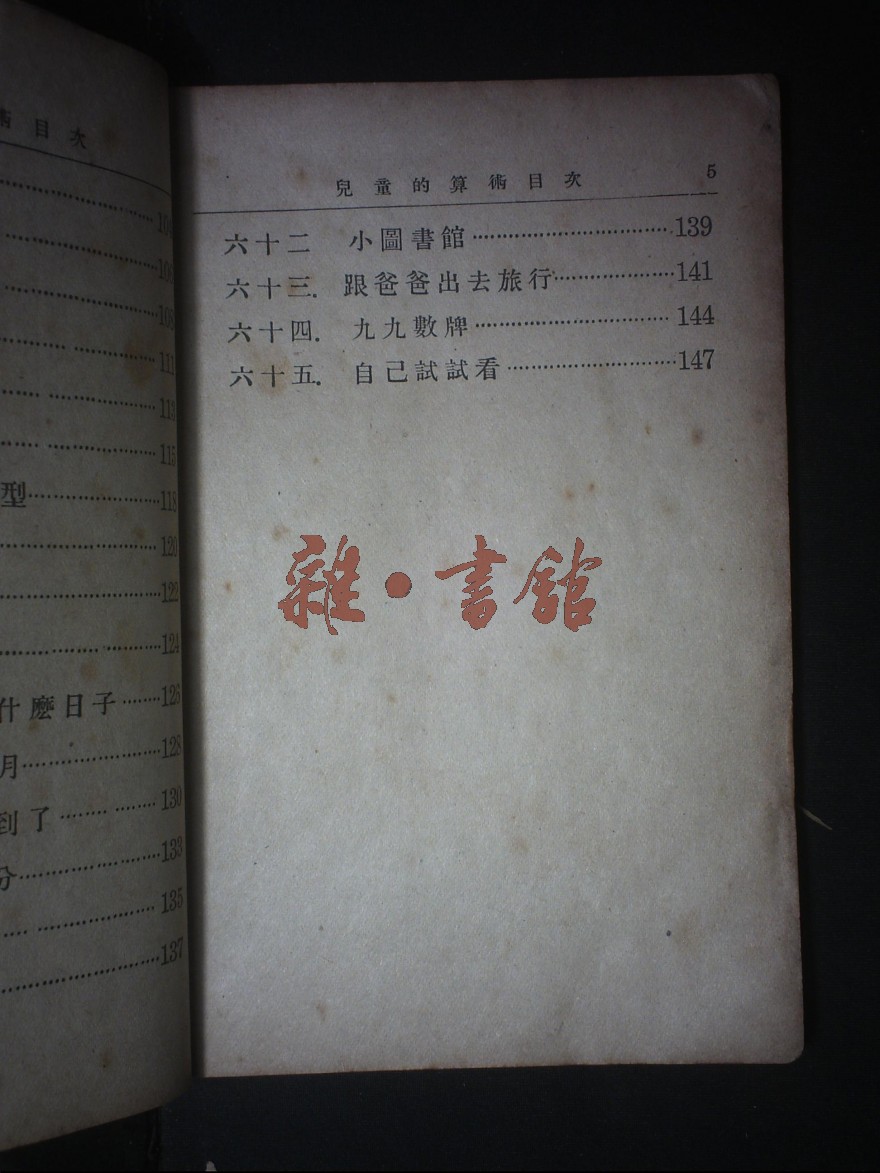 術目次
108
111
113
115
型……118
120
122
124
什麼日子……126
月……128
到了……130
分……133
135
137
兒童的算術目次 5
六十二 小圖書館……139
六十三. 跟爸爸出去旅行……141
六十四. 九九數牌……144
六十五. 自己試試看……147
雜·書館